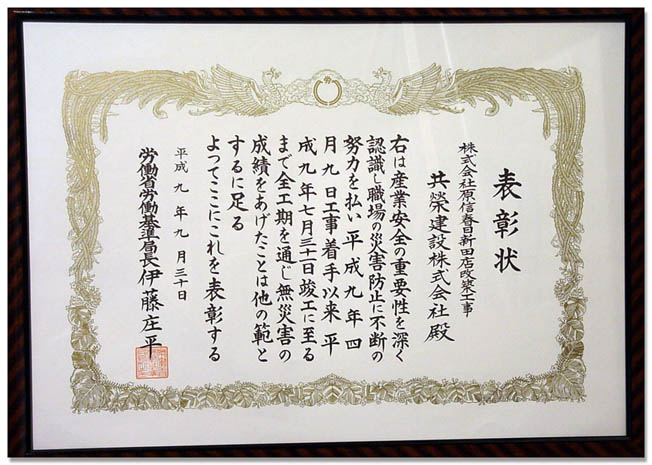 表彰状
株式会社原信春日新田店改築工事
共榮建設株式会社 殿
右は産業安全の重要性を深く
認識し職場の災害防止に不断の
努力を払い平成九年四
月九日工事着手以来 平
成九年七月三十一日竣工に至る
まで全工期を通じ無災害の
成績をあげたことは他の範と
するに足る
よってここにこれを表彰する
平成九年九月三十日
労働省労働基準局長伊藤庄平